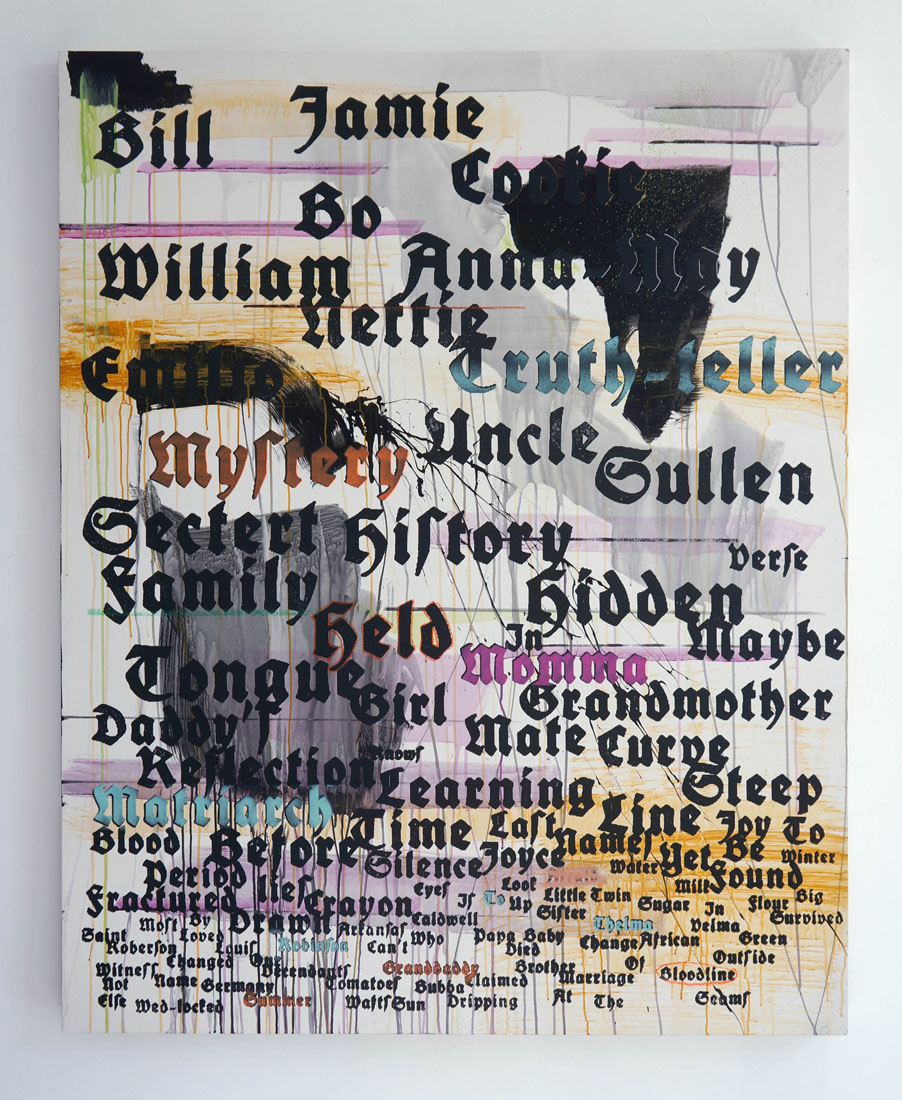 Jamie
Bill
Cookie
Bo
William Anna-May
Nettie
Truth-teller
Uncle
Myſtery Sullen
Sectert Hiſtory
Verſe
Family Hidden
Held In Maybe
Momma
Tongue Girl Grandmother
Daddy'ſ Mate Curve
Knowſ
Reflection Learning Steep
Matriarch Line
Blood Time Laſt Nameſ Joy To
Before Silence Joyce Yet Be Winter
Period Water Found
lieſ Eyeſ Look Milk
Fractured Crayon Iſ To Up Little Twin Sugar Flour Big
Drawn Caldwell Siſter In Survived
Moſt By Arkanſaſ Thelma Velma
Saint Loved Who Papa Baby Change African Green
Roberſon Louiſ Robinſon Can't Died
Changed Our Outſide
Witneſſ Decendantſ Granddaddy Brother Of Bloodline
Not Name Germany Tomatoeſ Bubba Claimed Marriage
Elſe Wed-locked Summer Wattſ Sun Dripping At The Seamſ